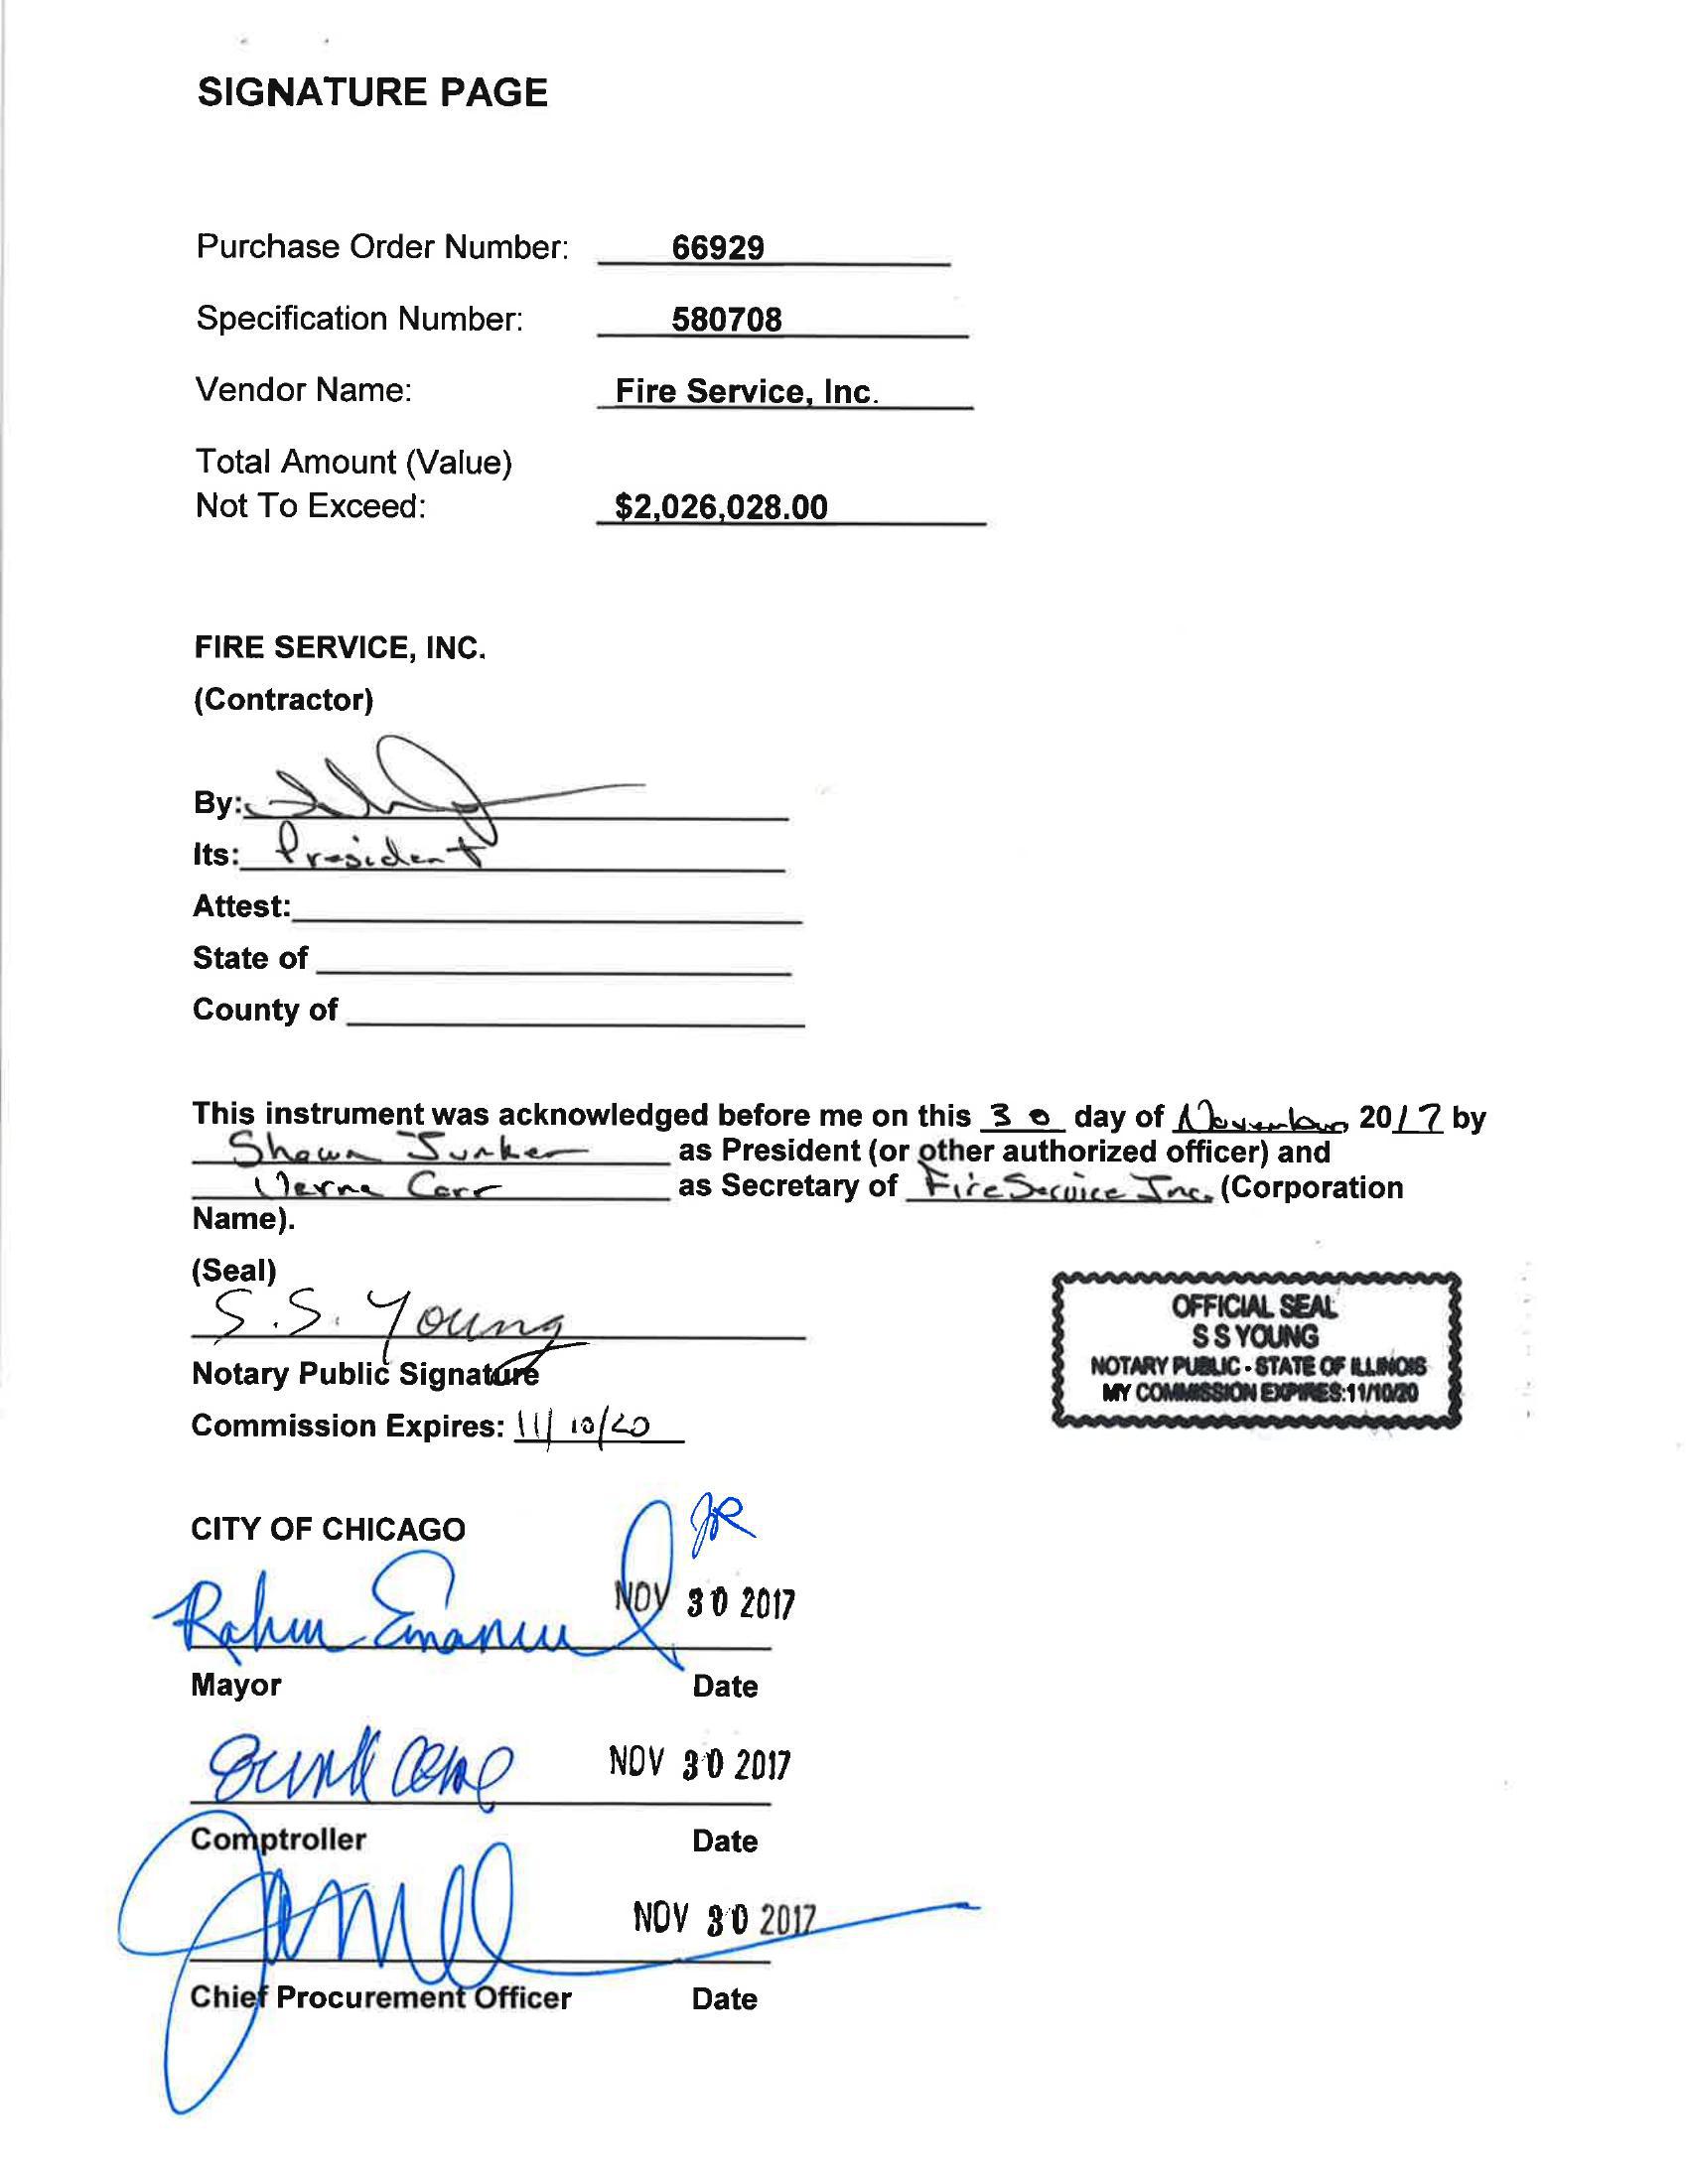 SIGNATURE PAGE
Purchase Order Number: 66929
Specification Number: 580708
Vendor Name: Fire Service, Inc.
Total Amount (Value)
Not To Exceed: $2,026,028.00
FIRE SERVICE, INC.
(Contractor)
By:
Its: President
Attest:
State of
County of
This instrument was acknowledged before me on this 30 day of November 2017 by
Shawn Junker as President (or other authorized officer) and
Verne Carr as Secretary of Fire Service Inc. (Corporation
Name).
(Seal)
S.S. Young
Notary Public Signature
Commission Expires: 11/10/20
OFFICIAL SEAL
S S YOUNG
NOTARY PUBLIC - STATE OF ILLINOIS
MY COMMISSION EXPIRES:11/10/20
CITY OF CHICAGO
JR
Rahm Emanuel NOV 30 2017
Mayor Date
NOV 30 2017
Comptroller Date
NOV 30 2017
Chief Procurement Officer Date